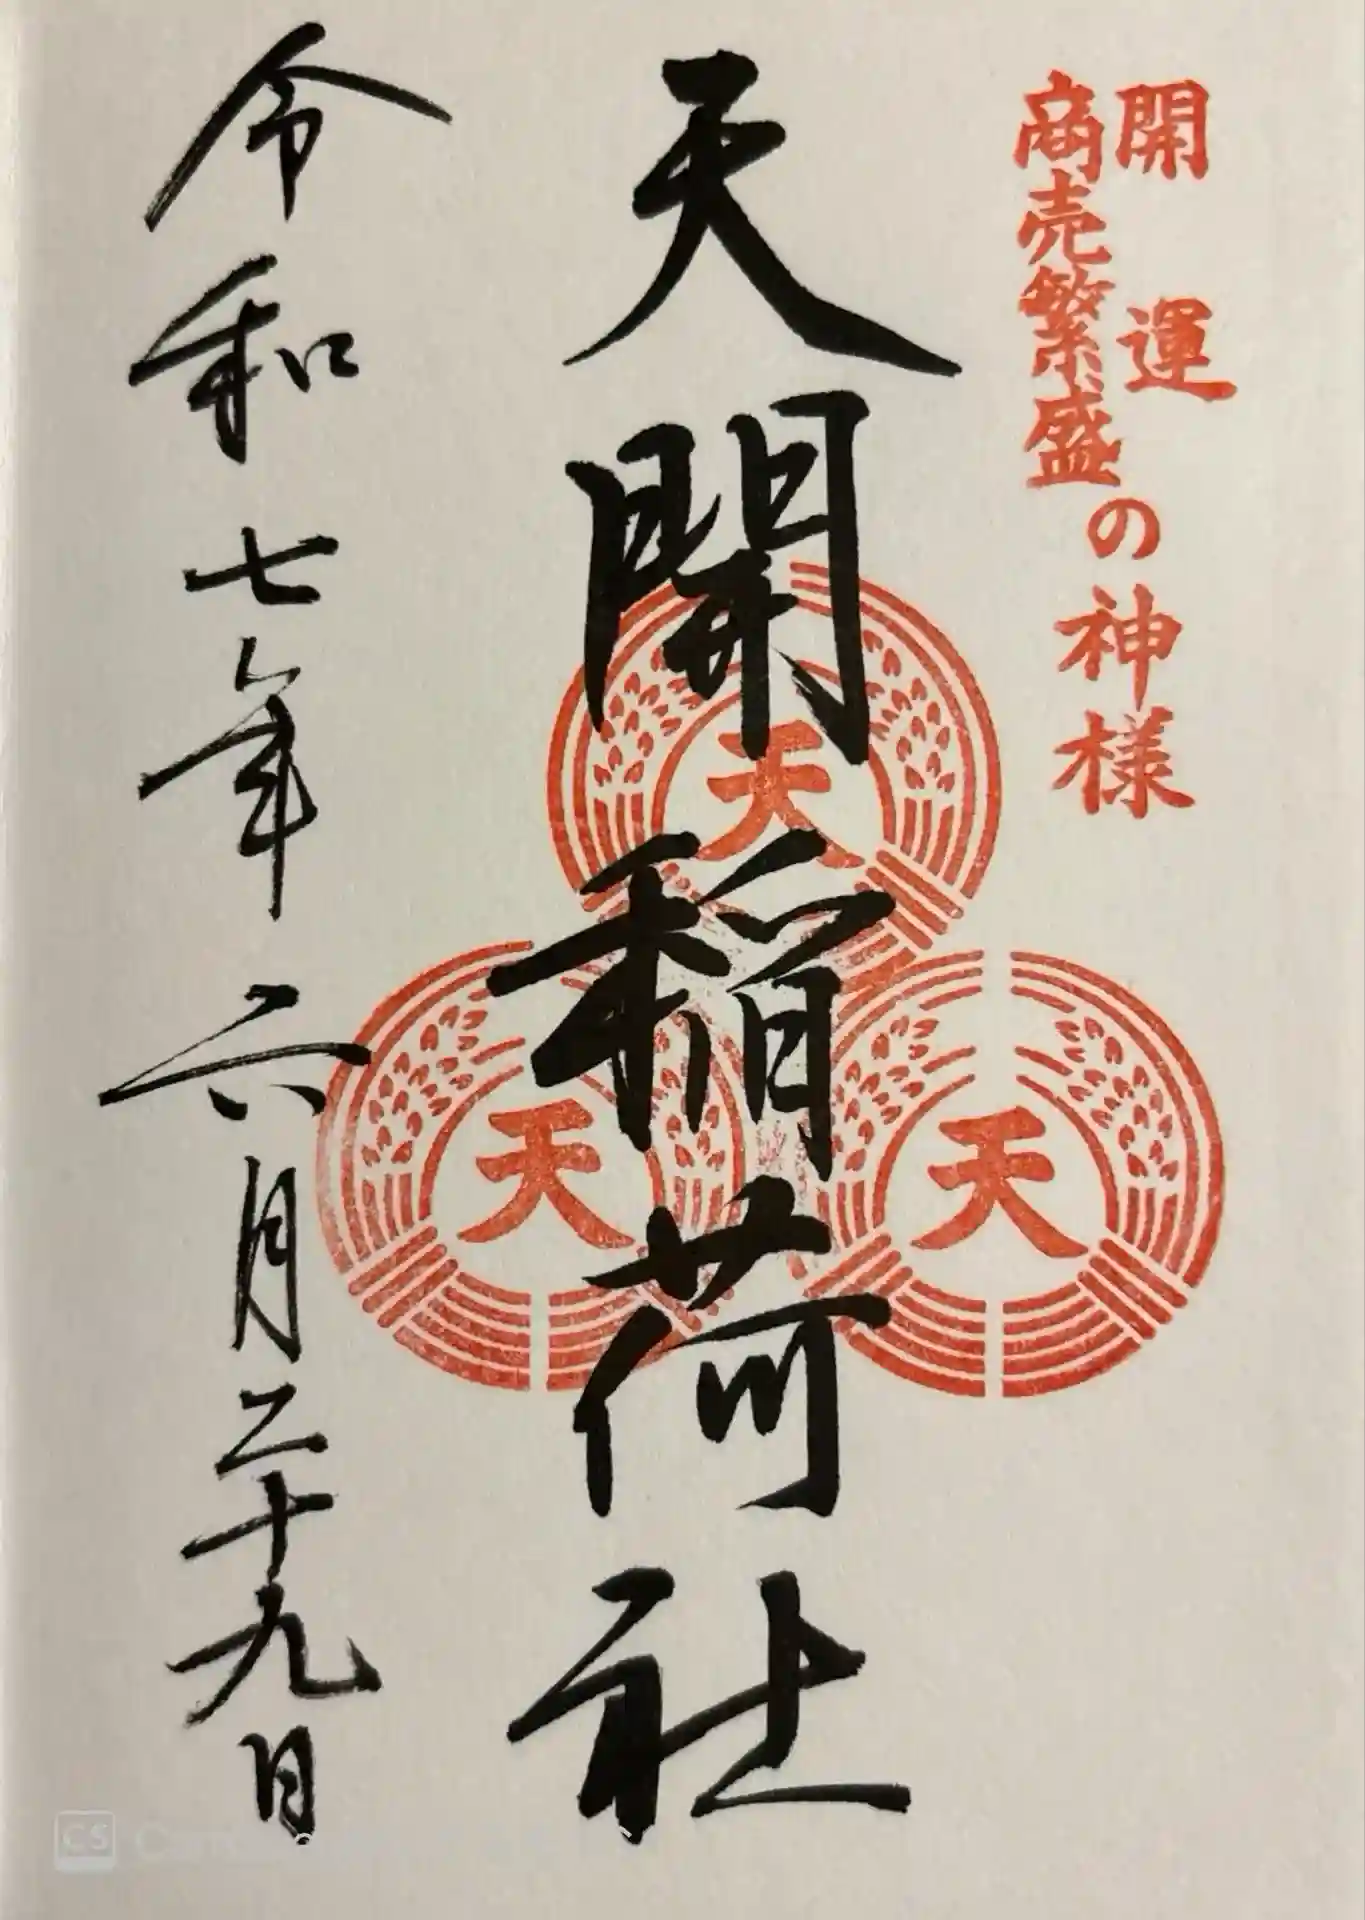 開運
商売繁盛
の神様
天開稲荷社
天
天
天
令和七年六月二十九日
CS